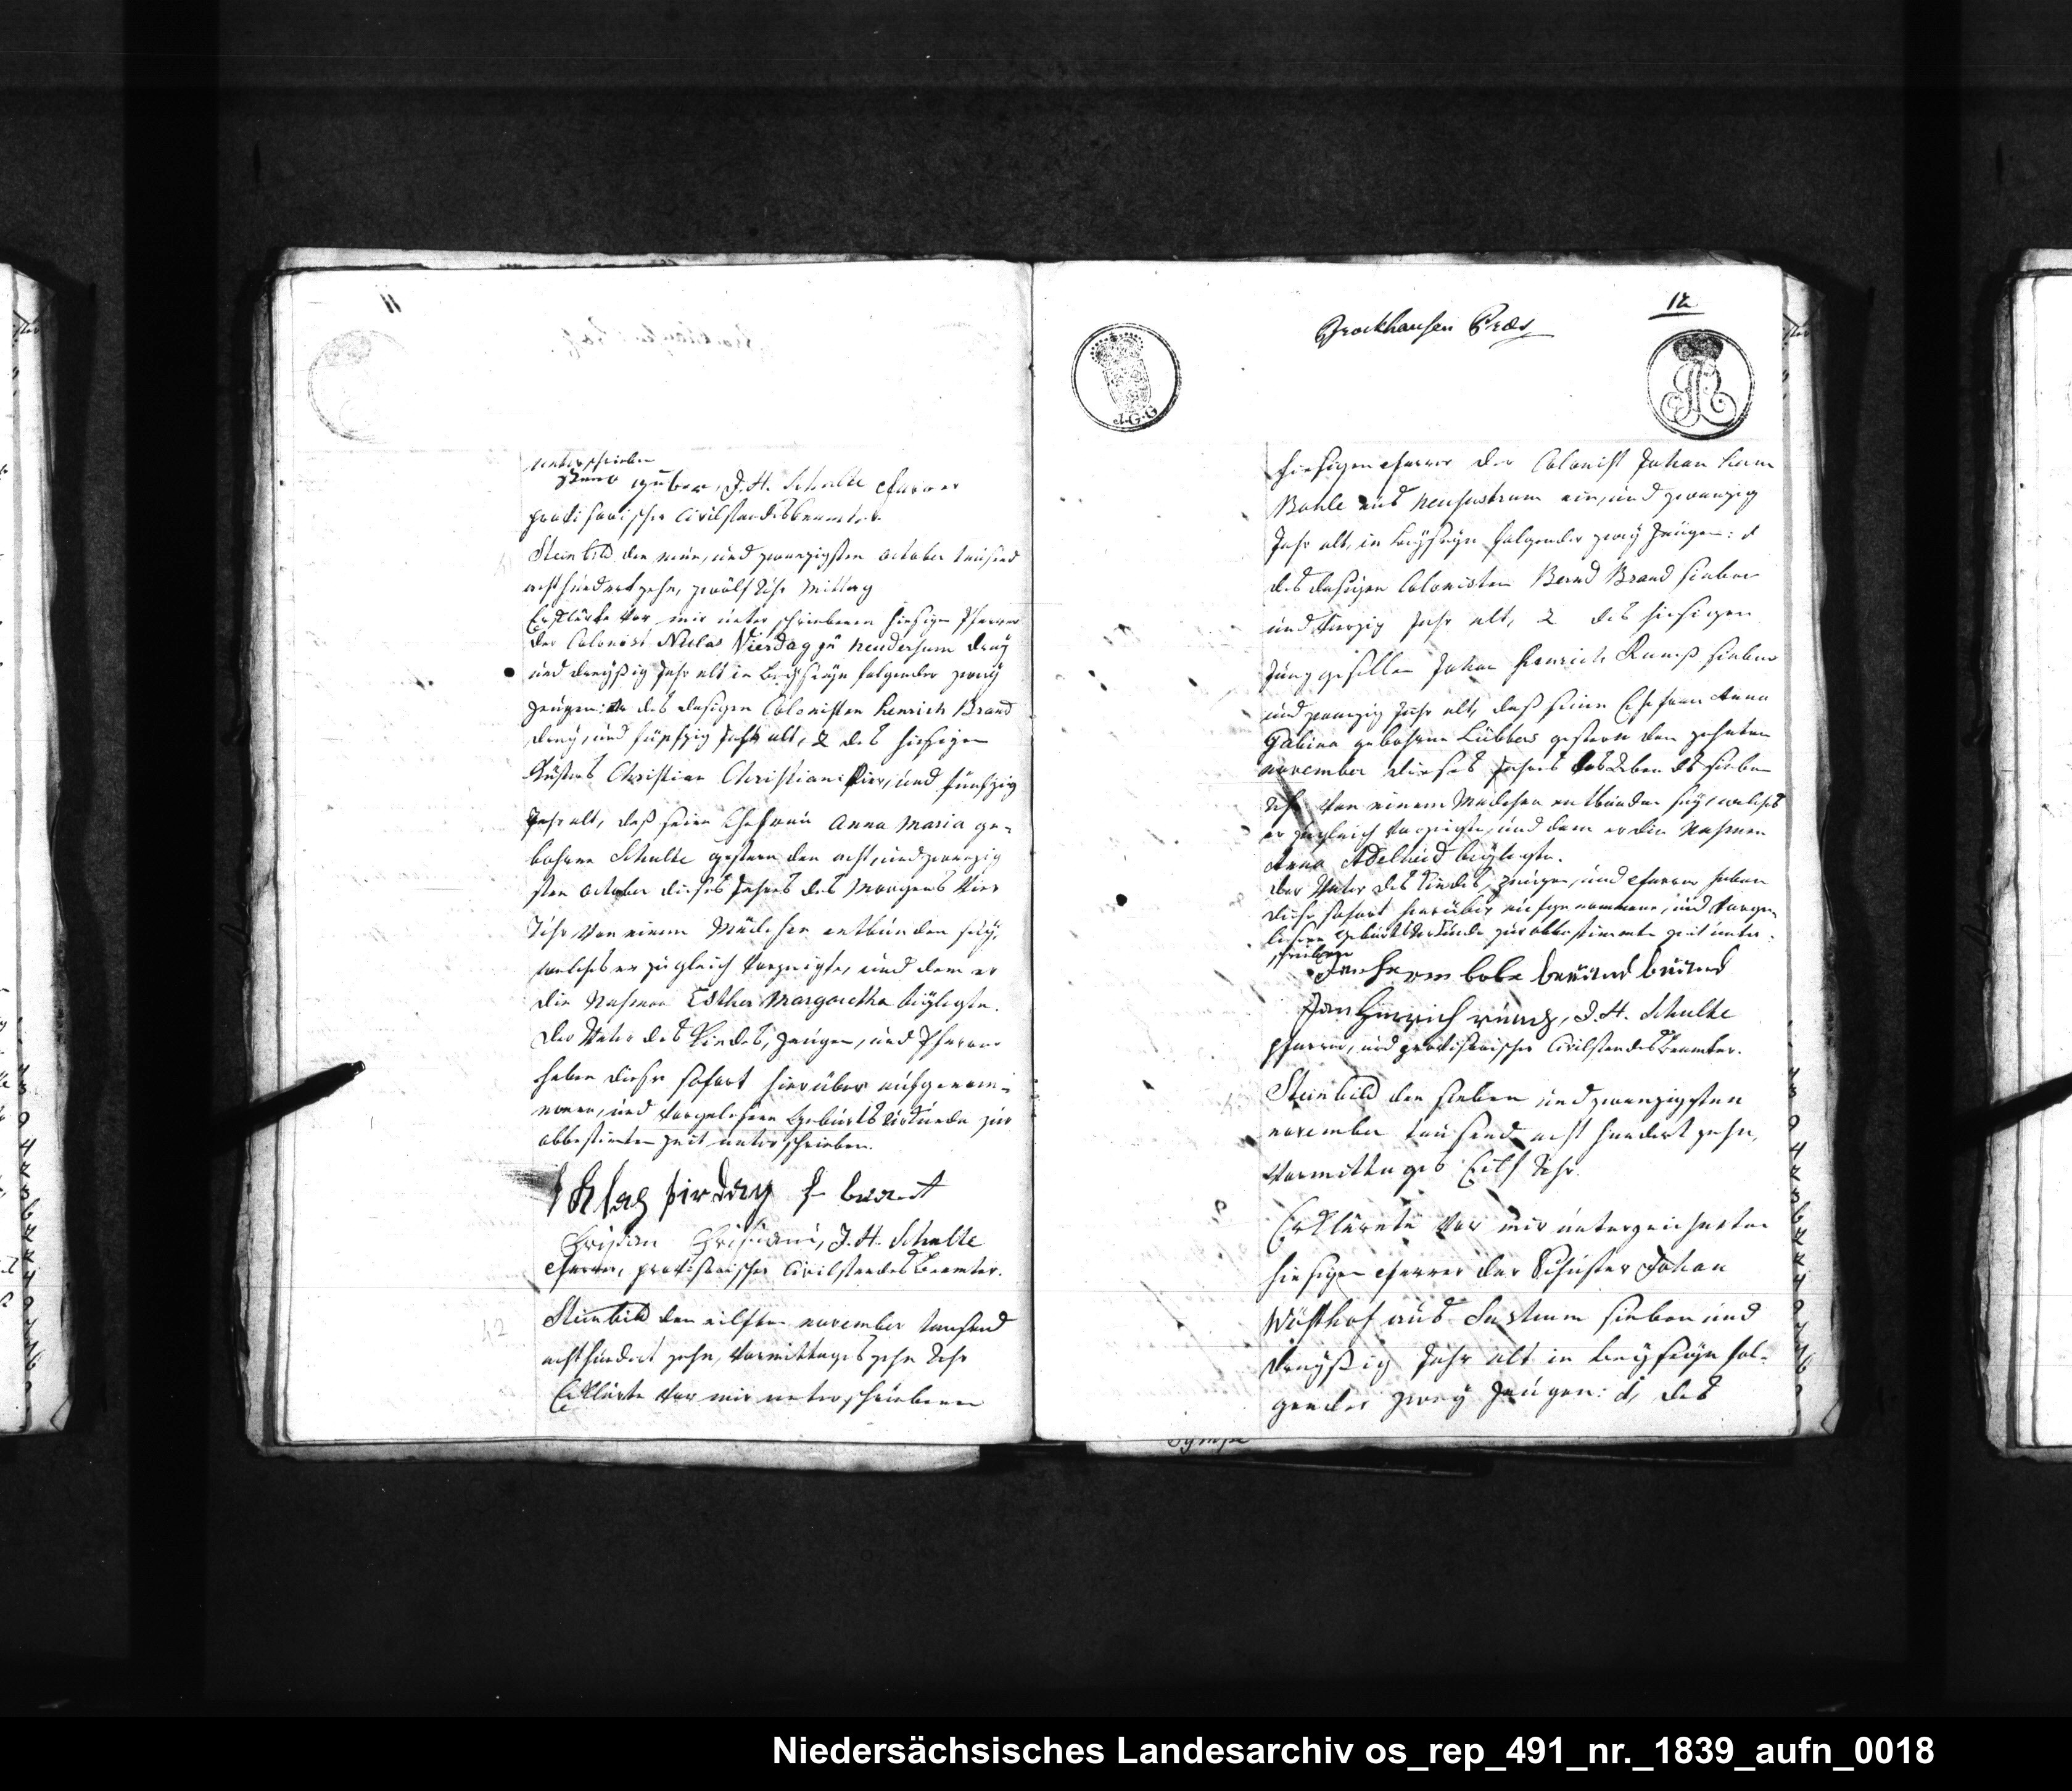 11
unterschrieben
J. H. Schulte Pfarrer
provisorischer Civilstandsbeamter.
Steinbild den neun, und zwanzigsten October tausend
acht hundert zehn, zwölf Uhr Mittag
Erklärte vor mir unterschriebenen hiesigen Pfarrer
der Colonist Niclas Vierdag zu Neudersum drey
und dreyßig Jahr alt in Beyseyn folgender zwey
Zeugen: des dasigen Colonisten Henrich Brand
drey, und fünfzig Jahr alt, 2 des hiesigen
Küsters Christian Christiani vier, und fünfzig
Jahr alt, daß seine Ehefrau Anna Maria ge-
bohrne Schulte gestern den acht, und zwanzig
sten October dieses Jahres des Morgens vier
Uhr von einem Mädchen entbunden sey,
welches er zugleich vorzeigte, und dem er
die Nahmen Esther Margaretha beylegte.
Der Vater des Kindes, Zeugen, und Pfarrer
haben diese sofort hierüber aufgenom-
mene, und vorgelesene Geburts Urkunde zur
obbestimten Zeit unterschrieben.
Klas firdag H brant
Christian Christiani, J. H. Schulte
Pfarrer, provisorischer Civilstandes Beamter.
42
Steinbild den eilften november tausend
acht hundert zehn, Vormittages zehn Uhr
Erklärte vor mir unterschriebenen
12
Brockhausen
J.G.G
hiesigen Pfarrer der Colonist Johan Herm
Bohle aus Neusustrum ein, und zwanzig
Jahr alt, in Beyseyn folgender zwey Zeugen: 1
des dasigen Colonisten Bernd Brand sieben
und vierzig Jahr alt, 2 des hiesigen
Junggesellen Johan Henrich Rump sieben
und zwanzig Jahr alt, daß seine Ehefrau Anna
Gabina gebohrne Lübbers gestern den zehnten
november dieses Jahres des Abends sieben
Uhr von einem Mädchen entbunden sey, welches
er zugleich vorzeigte, und dem er die Nahmen
Anna Adelheid beylegte.
der Vater des Kindes, Zeugen, und Pfarrer haben
diese sofort hierüber aufgenommene, und vorge-
lesene Geburts Urkunde zur obbestimmten Zeit unter-
schrieben
Jan herm bole
Jan Hinrich J. H. Schulte
Pfarrer, und provisorischer Civilstandes Beamter.
Steinbild den sieben und zwanzigsten
november tausend acht hundert zehn,
Vormittages Eilf Uhr.
Erklärete vor mir unterzeichneten
hiesigen Pfarrer der Schuster Johan
Wüsthof aus Sustrum sieben und
dreyßig Jahr alt in Beyseyn fol-
gender zwey Zeugen: 1, des
Niedersächsisches Landesarchiv os_rep_491_nr._1839_aufn_0018